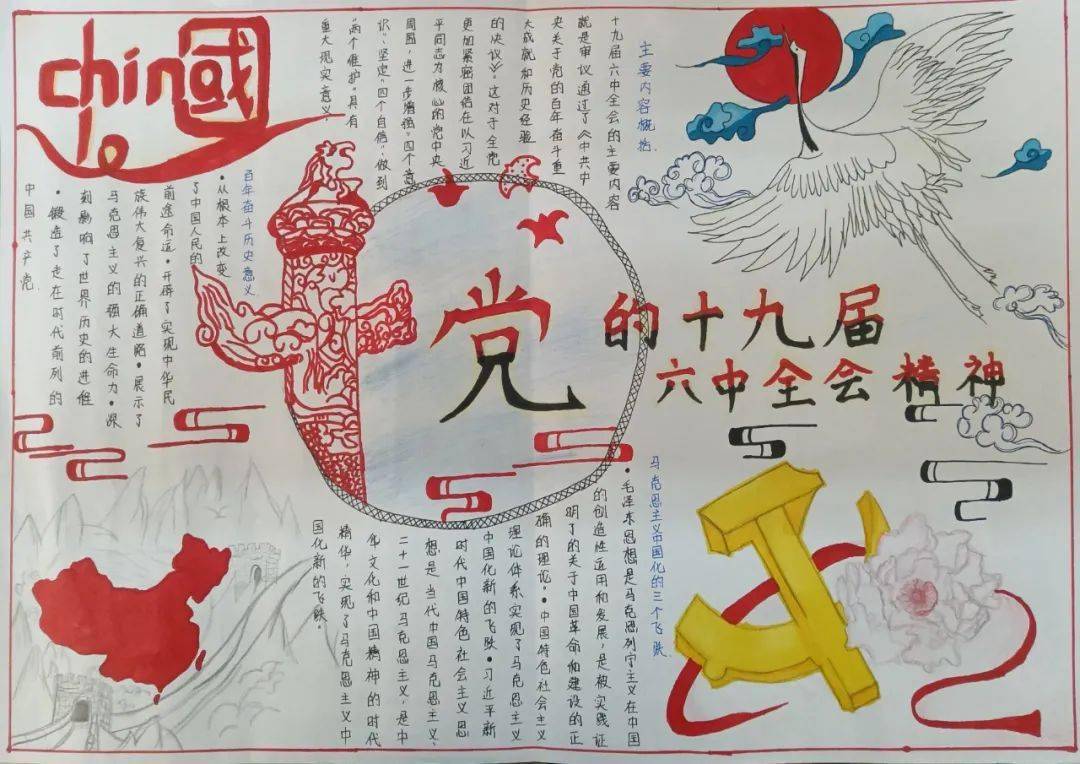 chin國
党的十九届
六中全会精神
主要内容概括.
十九届六中全会的主要内容
就是审议通过了《中共中
央关于党的百年奋斗重
大成就和历史经验
的决议》。这对于全党
更加紧密团结在以习近
平同志为核心的党中央
周围，进一步增强“四个意
识”，坚定“四个自信”，做到
“两个维护”具有
重大现实意义。
百年奋斗历史意义.
•从根本上改变
了中国人民的
前途命运•开辟了实现中华民
族伟大复兴的正确道路•展示了
马克思主义的强大生命力•深
刻影响了世界历史的进程
•锻造了走在时代前列的
中国共产党.
马克思主义中国化的三个飞跃.
•毛泽东思想是马克思列宁主义在中国
的创造性运用和发展，是被实践证
明了的关于中国革命和建设的正
确的理论。•中国特色社会主义
理论体系实现了马克思主义
中国化新的飞跃•习近平新
时代中国特色社会主义思
想是当代中国马克思主义、
二十一世纪马克思主义，是中
华文化和中国精神的时代
精华，实现了马克思主义中
国化新的飞跃。